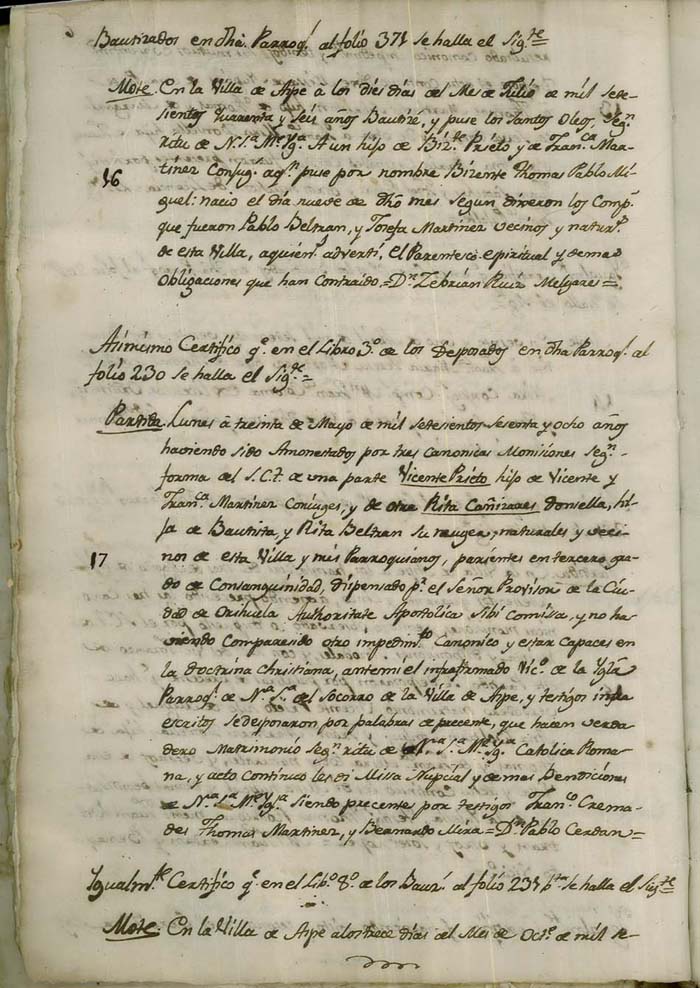 Bautizados en dha. Parroql. al folio 371 se halla el Sigte.
Mote. En la Villa de Aspe á los diés dias del Mes de Julio de mil sete-
sientos quarenta y seis años Bautizé, y puse los santos Oleos, segn.
ritu de N. Sa. Me. Yga. A un hijo de Bizte. Prieto y de Franca. Mar-
tinez Conjug. aqn. puse por nombre Bizente Thomas Pablo Mi-
16
guel: nacio el dia nueve de dho mes segun dixeron los Comps.
que fueron Pablo Beltran, y Josefa Martinez vecinos y naturs.
de esta Villa, aquiens. advertí, el Parentesco espiritual y demas
obligaciones que han Contraido = Dn. Zebrian Ruiz Melgarez =
Asimismo Certifico qe. en el Libro 3o. de los Desposados en dha Parroql. al
folio 230 se halla el Sigte. =
Partida. Lunes á treinta de Mayo de mil setesientos sesenta y ocho años
haviendo sido Amonestados por tres Canonicas Monisiones segn.
forma del S.C.T. de una parte Vicente Prieto hijo de Vicente y
Franca. Martinez Coniuges, y de otra Rita Cañizares donsella, hi-
ja de Bautista, y Rita Beltran su muger, naturales y veci-
17
nos de esta Villa y mis Parroquianos, parientes en tercero gra-
do de Consanguinidad, dispensado pr. el Señor Provisor de la Ciu-
dad de Orihuela Authoritate Apostolica sibi Comissa, y no ha-
viendo Comparesido otro impedimto. Canonico y estar Capaces en
la Doctrina Christiana, antemi el infrafirmado Vico. de la Ygla.
Parroql. de Na. Sa. del Socorro de la Villa de Aspe, y testigos infra
escritos se desposaron por palabras de precente, que hacen verda
dero Matrimonio segn. ritu de Na. Sa. Me. Yga. Catolica Roma-
na, y acto Continuo les di Missa Nupcial y demas Bendiciones
de Na. Sa. Me. Yga. siendo precente por testigos Franco. Crema-
des Thomas Martinez, y Bernardo Mira = Dn. Pablo Cerdan =
Ygualmte. Certifico qe. en el Libo. 8o. de los Bauz. al folio 231 bta. se halla el Sigte.
Mote. En la Villa de Aspe alos trece dias del Mes de Octe. de mil se-